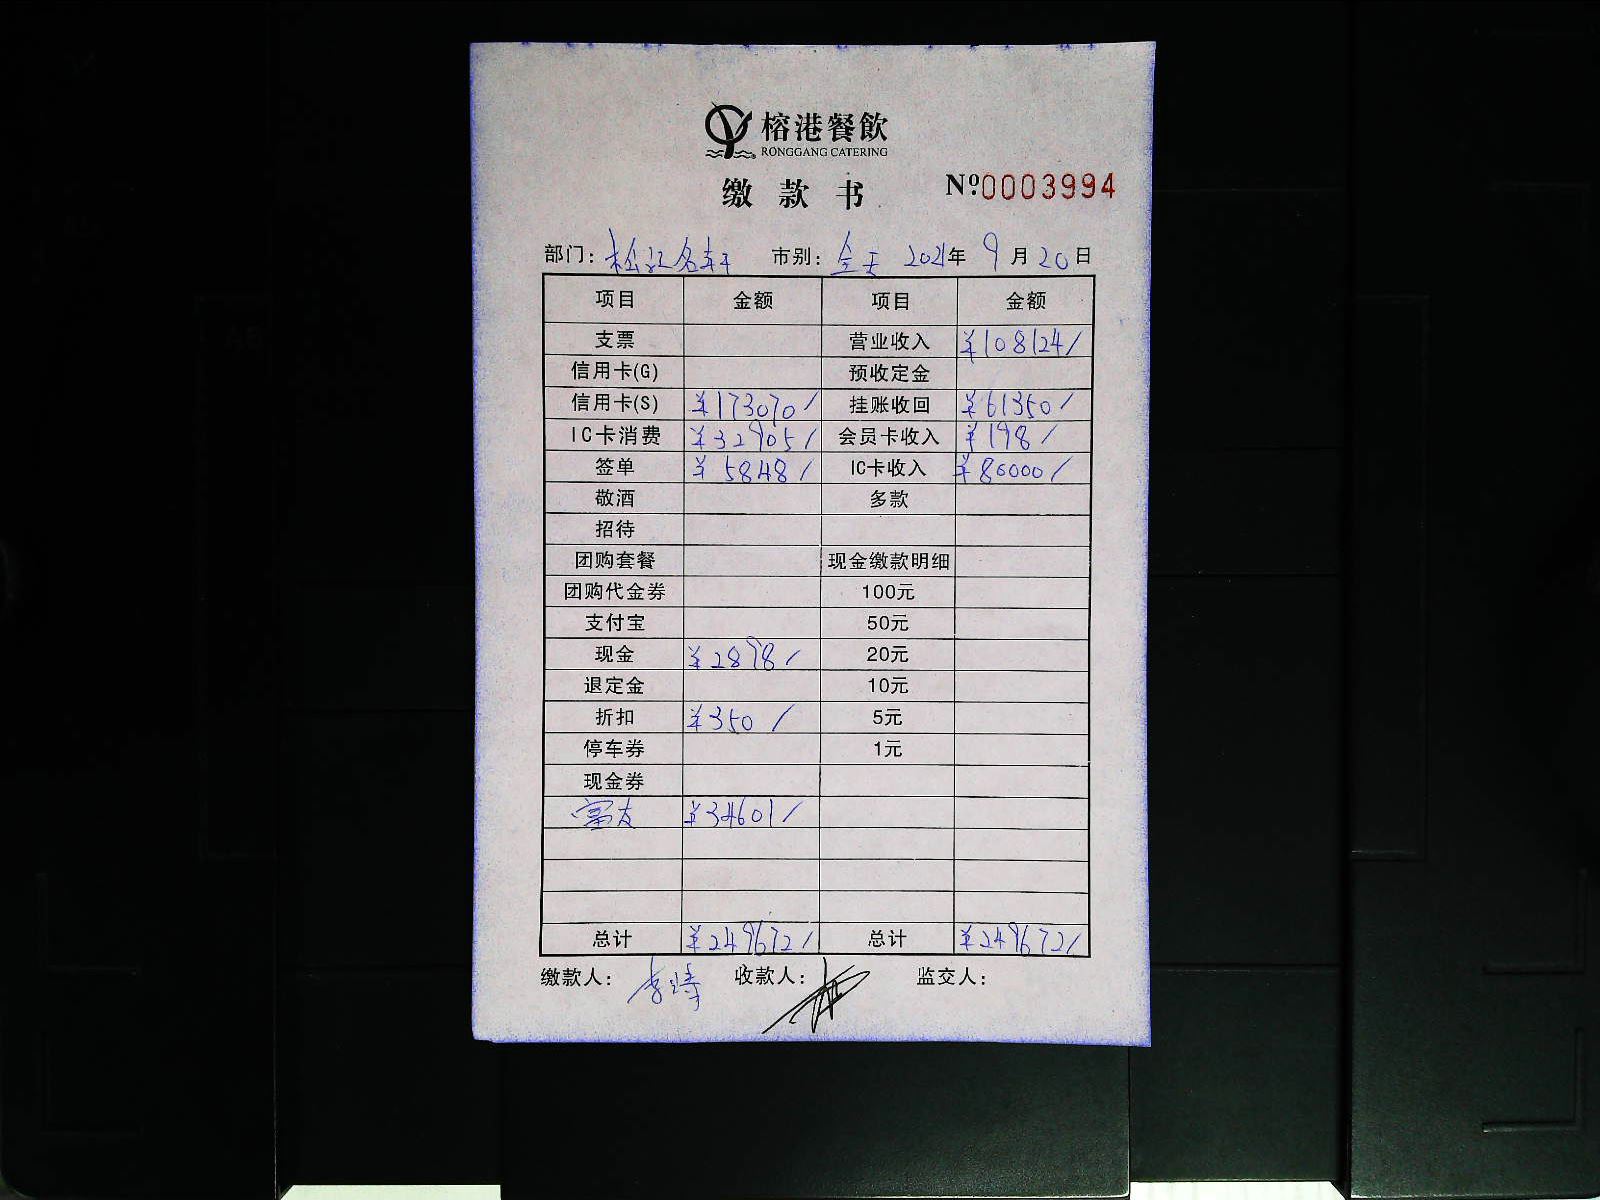 榕港餐飲
RONGGANG CATERING
缴款书 Nº.0003994
部门：松江名轩 市别：全天 2021年9月20日
项目 金额 项目 金额
支票 营业收入 ¥108124/
信用卡(G) 预收定金
信用卡(S) ¥173070/ 挂账收回 ¥61350/
IC卡消费 ¥32905/ 会员卡收入 ¥198/
签单 ¥5848/ IC卡收入 ¥80000/
敬酒 多款
招待
团购套餐 现金缴款明细
团购代金券 100元
支付宝 50元
现金 ¥2898/ 20元
退定金 10元
折扣 ¥350/ 5元
停车券 1元
现金券
富友 ¥34601/
总计 ¥249672/ 总计 ¥249672/
缴款人： 收款人： 监交人：